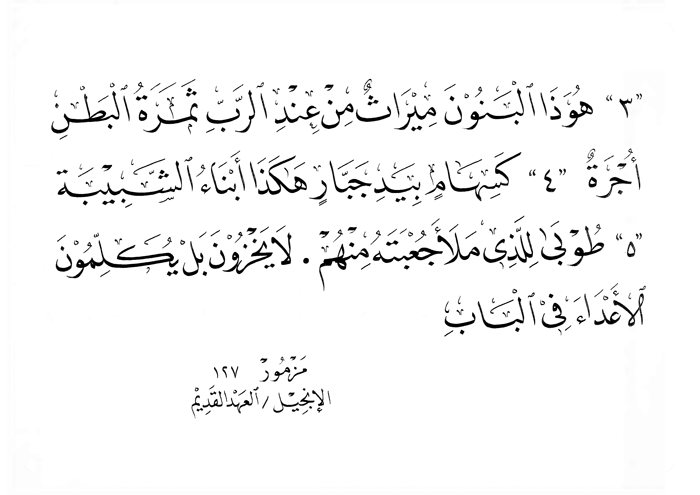 "٣" هُوَذَا الْبَنُوْنَ مِيْرَاثٌ مِنْ عِنْدِ الرَّبِّ ثَمَرَةُ الْبَطْنِ
أُجْرَةٌ "٤" كَسِهَامٍ بِيَدِ جَبَّارٍ هَكَذَا أَبْنَاءُ الشَّبِيْبَة
"٥" طُوْبَىٰ لِلَّذِى مَلَأَ جُعْبَتَهُ مِنْهُمْ . لَا يَخْزُوْنَ بَلْ يُكَلِّمُوْنَ
الْأَعْدَاءَ فِىْ الْبَابِ
مَزْمُوْرْ ١٢٧
الإِنْجِيْل / العَهْدالقَدِيْمْ